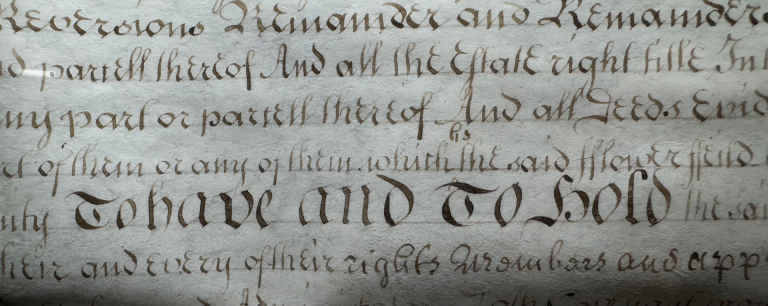 Reversions Remainder and Remainders
parcell thereof And all the Estate right title Int
any part or parcell thereof And all Deeds Evid
of them or any of them which the said fflower ffeild
To have and To Hold the sai
their and every of their rights Members and app